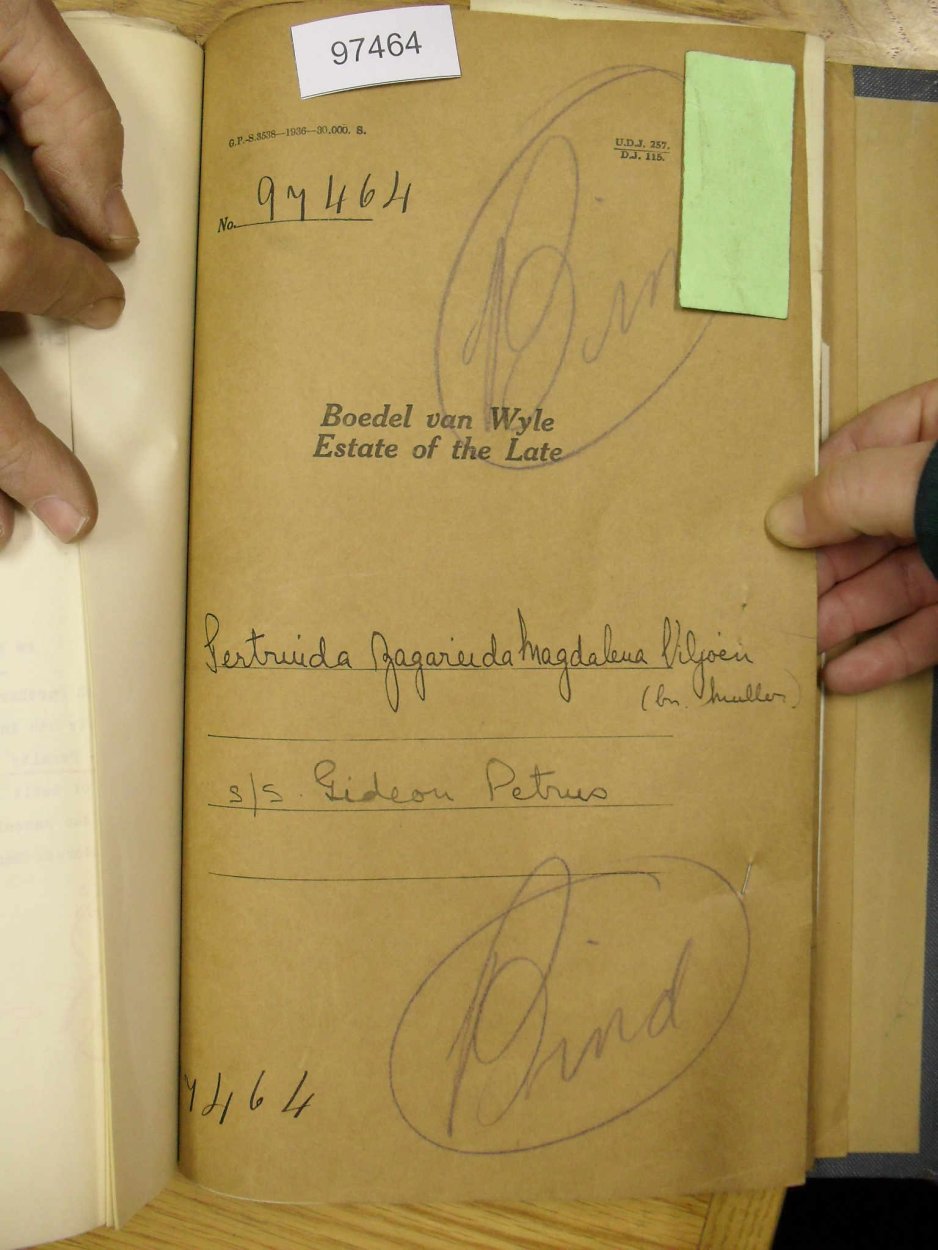 97464
G.P.-S.3538—1936—30.000. S.
U.D.J. 257.
D.J. 115.
No. 97464
Bin
Boedel van Wyle
Estate of the Late
Gertruida Zagareida Magdalena Viljoen
(bn. Muller)
s/s. Gideon Petrus
Bind
7464